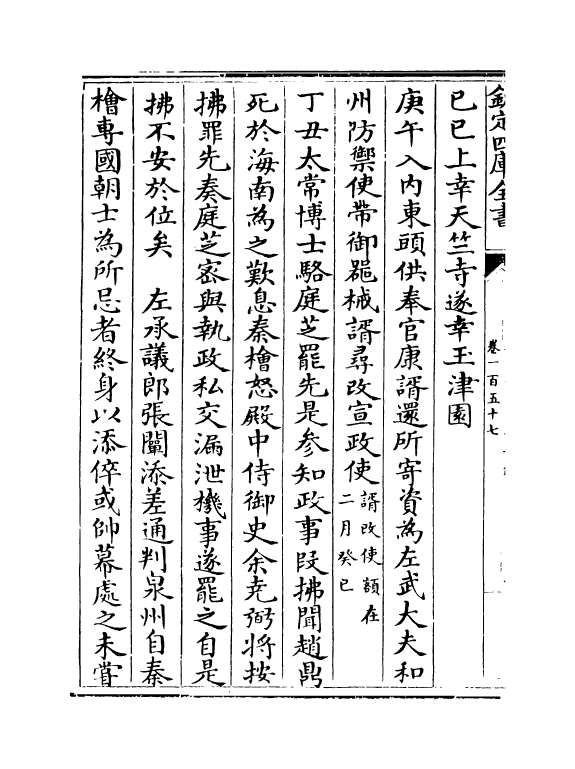 欽定四庫全書
卷一百五十七
己巳上幸天竺寺遂幸玉津園
庚午入内東頭供奉官康諝還所寄資為左武大夫和
州防禦使帶御器械諝尋改宣政使諝改使額在二月癸巳
丁丑太常博士駱庭芝罷先是參知政事段拂聞趙鼎
死於海南為之歎息秦檜怒殿中侍御史余堯弼將按
拂罪先奏庭芝宻與執政私交漏泄機事遂罷之自是
拂不安於位矣　左承議郎張闡添差通判泉州自秦
檜專國朝士為所忌者終身以添倅或帥幕處之未嘗